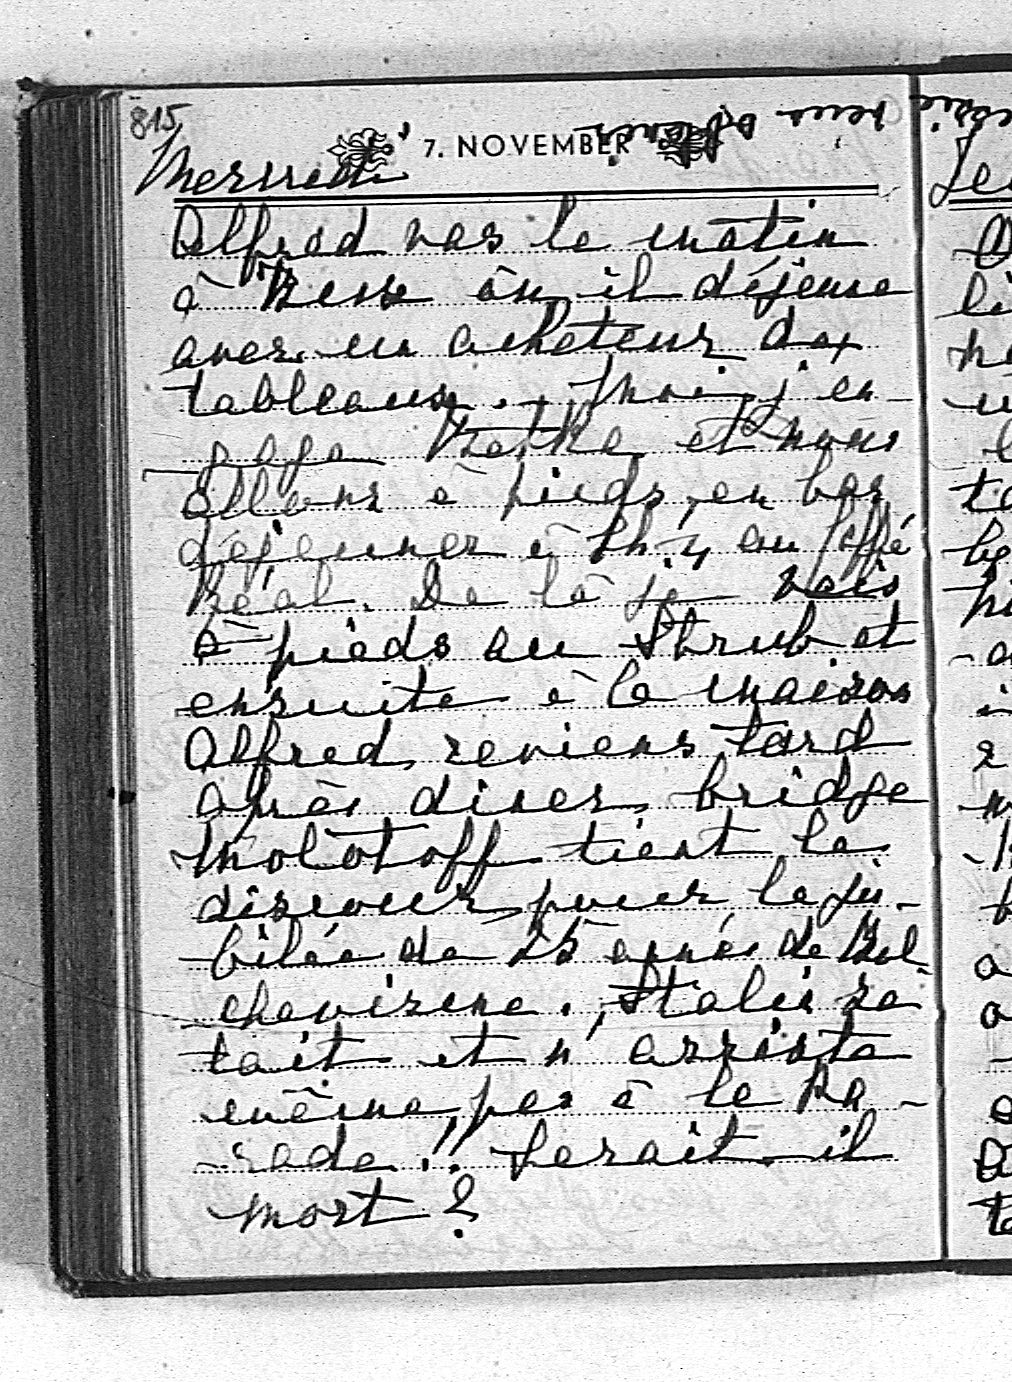 815
7. NOVEMBER
Mercredi
Alfred vas le matin
à où il déjeune
avec un acheteur de
tableaux. Moi j'en-
gage et nous
allons à pieds en bas
déjeuner à au Caffé
Réal. De là je vais
à pieds au Strub et
ensuite à la maison
Alfred reviens tard
Après diner bridge
Molotoff tient le
discour pour le ju-
bilée de 25 année de Bol
chevisme. Staline se
tait et n'assista
même pas à la Pa-
rade!! Serait-il
mort?